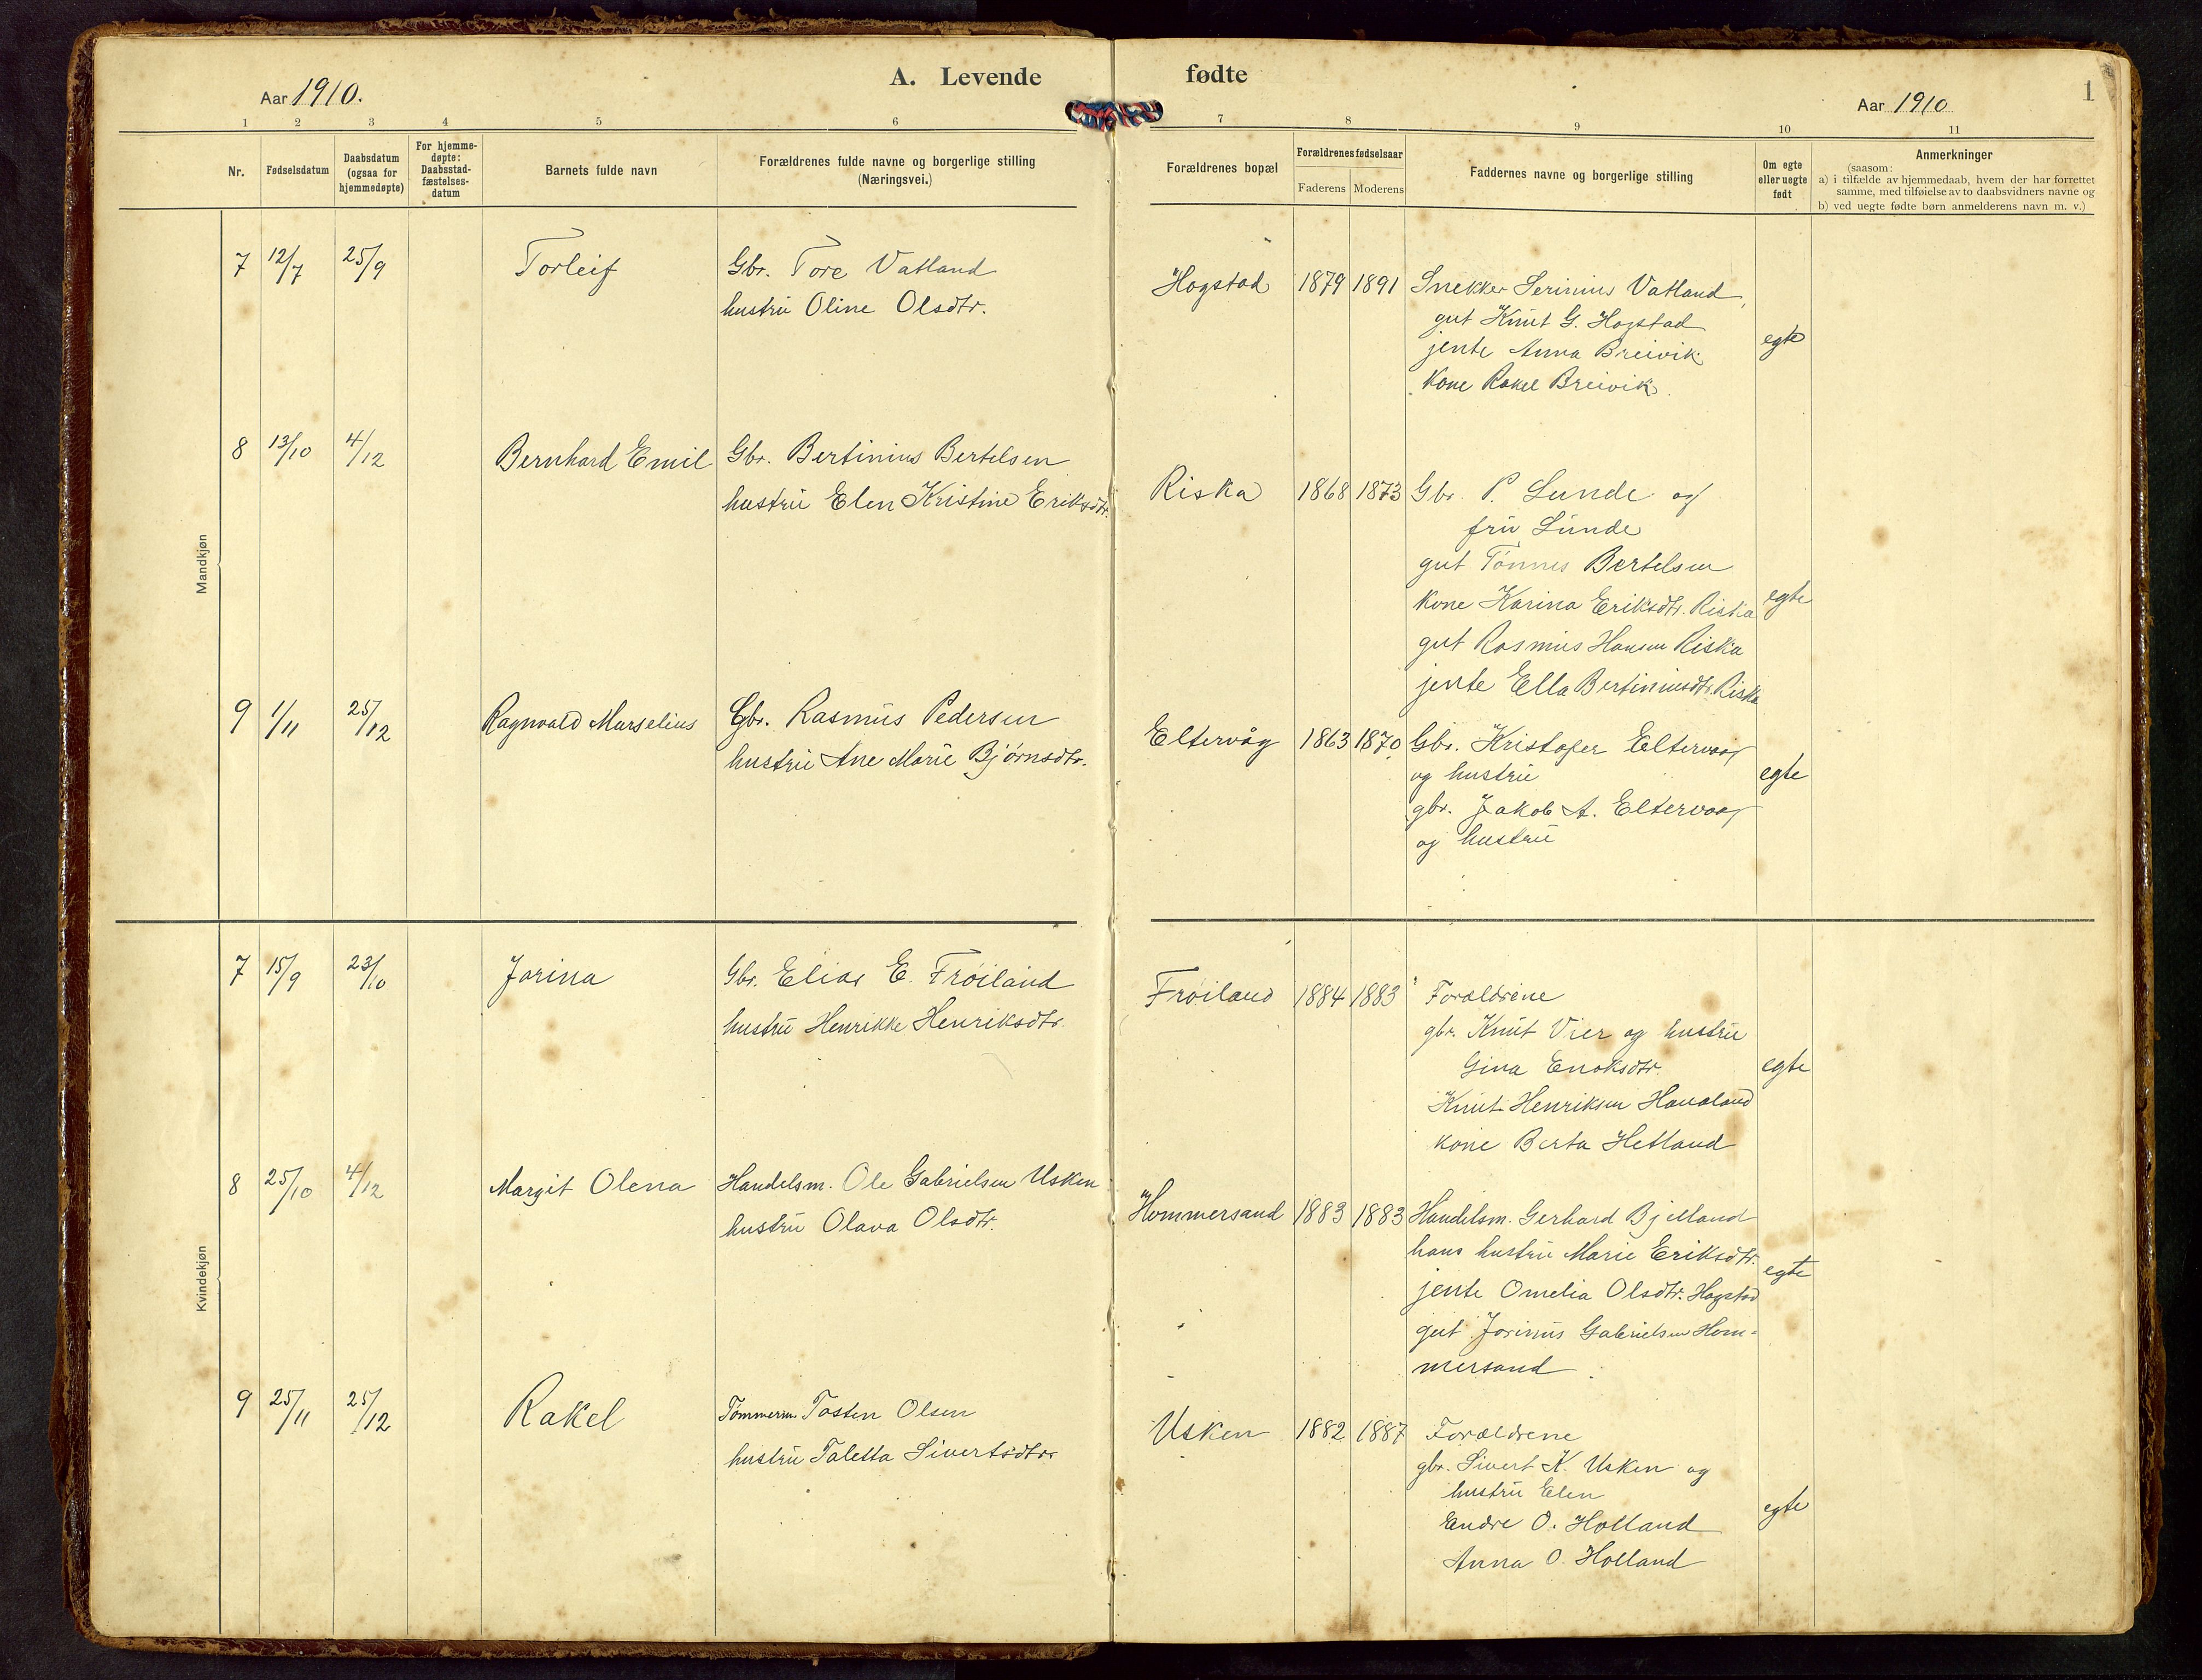 A. Levende fødte
Aar 1910.
Aar 1910
1
1 2 3 4 5 6 7 8 9 10 11
Nr.
Fødselsdatum
Daabsdatum
(ogsaa for
hjemmedøpte)
For hjemme-
døpte:
Daabsstad-
fæstelses-
datum
Barnets fulde navn
Forældrenes fulde navne og borgerlige stilling
(Næringsvei.)
Forældrenes bopæl
Forældrenes fødselsaar
Faderens Moderens
Faddernes navne og borgerlige stilling
Om egte
eller uegte
født
Anmerkninger
(saasom:
a) i tilfælde av hjemmedaab, hvem der har forrettet
samme, med tilføielse av to daabsvidners navne og
b) ved uegte fødte børn anmelderens navn m. v.)
Mandkjøn
7 12/7 25/9 Torleif
Gbr. Tore Vatland
hustru Oline Olsdtr.
Hogstad 1879 1891
Snekker Serinius Vatland,
gut Knut G. Hogstad
jente Anna Breivik
Kone Rakel Breivik.
egte
8 13/10 4/12 Bernhard Emil
Gbr. Bertinius Bertelsen
hustru Elen Kristine Eriksdtr.
Riska 1868 1873
Gbr. P. Lunde og
fru Lunde
gut Tønnes Bertelsen
Kone Karina Eriksdtr. Riska
gut Rasmus Hansen Riska
jente Ella Bertiniusdtr. Riska
egte
9 1/11 25/12 Ragnvald Marselius
Gbr. Rasmus Pedersen
hustru Ane Marie Bjørnsdtr.
Eltervåg 1863 1870
Gbr. Kristofer Eltervaag
og hustru
gbr. Jakob A. Eltervaag
og hustru
egte
Kvindekjøn
7 15/9 23/10 Jorina
Gbr. Elias E. Frøiland
hustru Henrikke Henriksdtr.
Frøiland 1884 1883
Forældrene
gbr. Knut Vier og hustru
Gina Enoksdtr.
Knut Henriksen Haualand
kone Berta Hetland
egte
8 25/10 4/12 Margit Olena
Handelsm. Ole Gabrielsen Usken
hustru Olava Olsdtr.
Hommersand 1883 1883
Handelsm. Gerhard Bjelland
hans hustru Marie Eriksdtr.
jente Omelia Olsdtr. Hogstad
gut Jorinus Gabrielsen Hom-
mersand
egte
9 25/11 25/12 Rakel
Tømmerm. Tosten Olsen
hustru Taletta Sivertsdtr.
Usken 1882 1887
Forældrene
gbr. Sivert K. Usken og
hustru Elen
Endre O. Holland
Anna O. Holland
egte